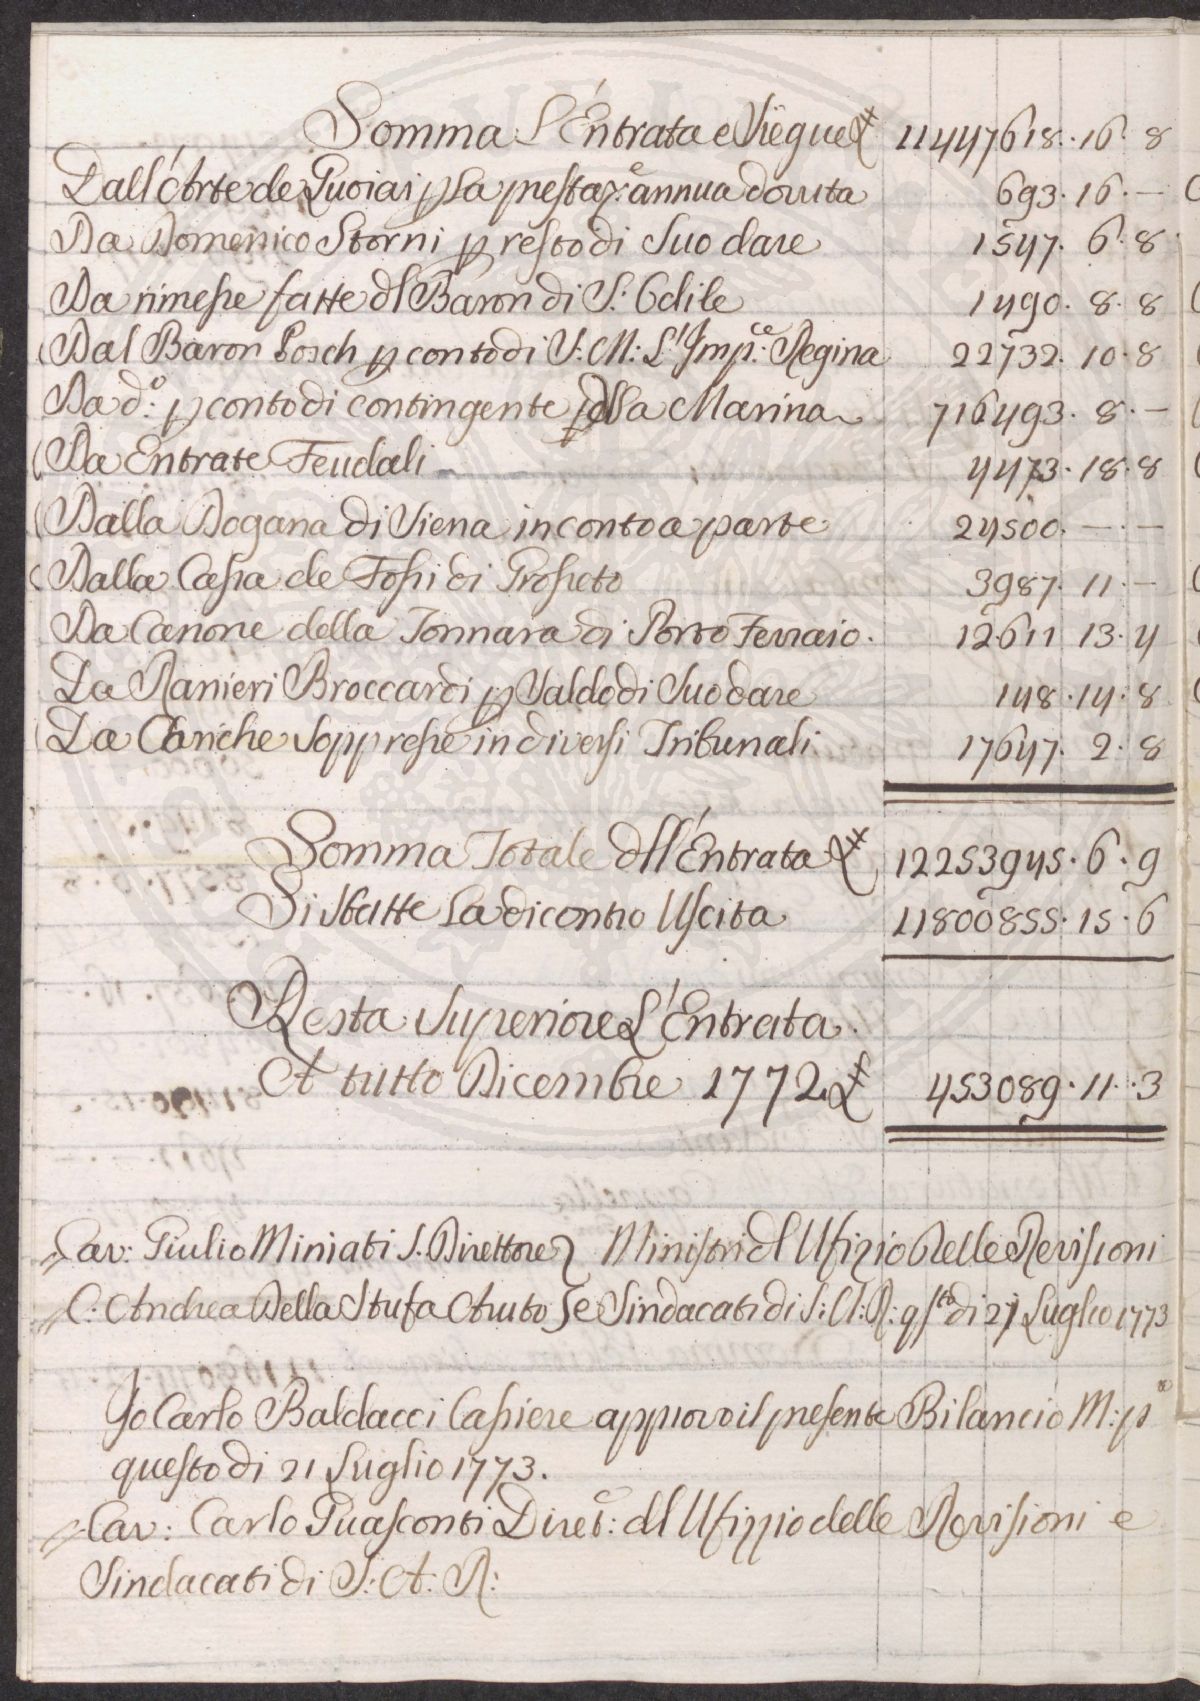 Somma L'Entrata e Siegue £ 11447618.16.8
Dall'Arte de Quoiai p la prestaz.e annua dovuta 693.16.—
Da Domenico Storni p resto di Suo dare 1547.6.8
Da rimesse fatte dl Baron di S: Odile 1490.8.8
Dal Baron Bosch p conto di S: M: L'Imp.ce Regina 22732.10.8
Da d.o p conto di contingente plla Marina 716493.8.—
Da Entrate Feudali 4473.18.8
Dalla Dogana di Siena in conto a parte 24500.—.—
Dalla Cassa de Fossi di Grosseto 3987.11.—
Da Canone della Tonnara di Porto Ferraio. 12611 13.4
Da Ranieri Broccardi p Saldo di Suo dare 148.14.8
Da Cariche Soppresse in diversi Tribunali 17647.2.8
Somma Totale dll'Entrata £ 12253945.6.9
Si Sbatte La di contro Uscita 11800855.15.6
Resta Superiore L'Entrata.
A tutto Dicembre 1772. £ 453089.11.3
Cav: Giulio Miniati S. Direttore } Ministri dl Ufizio Delle Revisioni
C: Andrea Della Stufa Aiuto } e Sindacati di S: A: R: q.sto di 21 Luglio 1773
Io Carlo Baldacci Cassiere approvo il presente Bilancio M: p.a
questo di 21 Luglio 1773.
Cav: Carlo Guasconti Diret.e: dll Ufizzio delle Revisioni e
Sindacati di S: A: R: